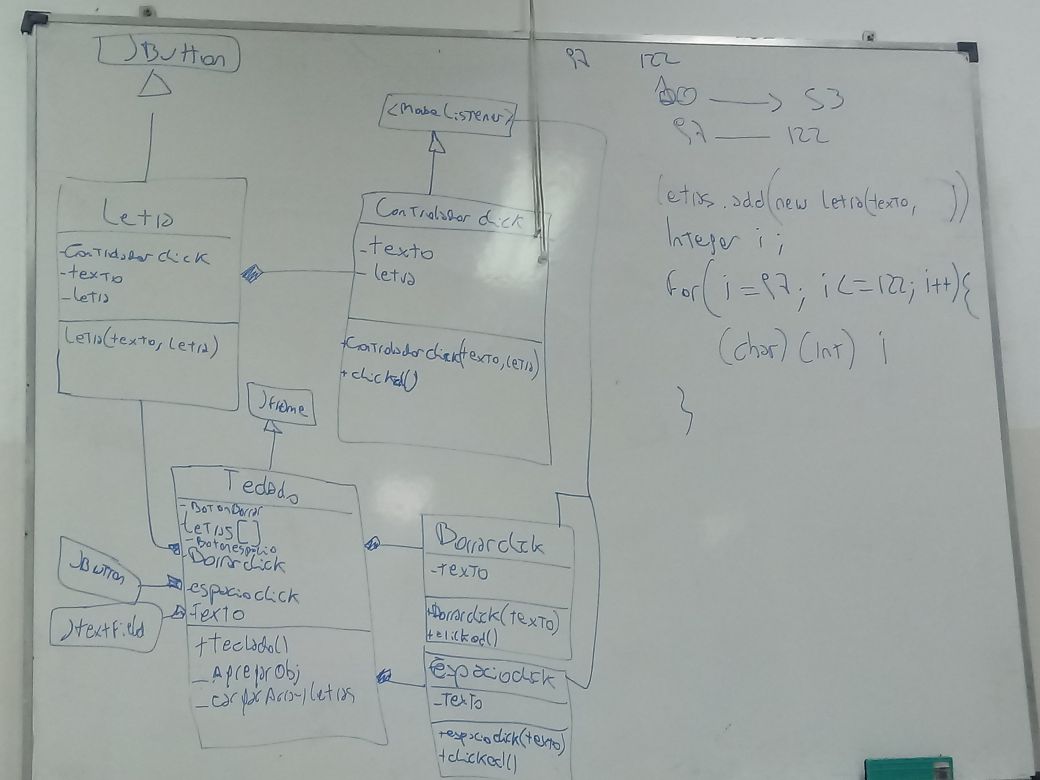 JButton
<MouseListener>
Letra
-Controlador click
-texto
-letra
Letra(texto, letra)
Controlador click
-texto
-letra
+Controladorclick(texto, letra)
+clicked()
JFrame
Teclado
-BotonBorrar
Letras[]
-Botonespacio
Borrarclick
-espacioclick
-texto
+Teclado()
_AgregarObj
JButton
JtextField
Borrarclick
-texto
+Borrarclick(texto)
+clicked()
espacioclick
-Texto
+espacioclick(texto)
+clicked()
97 122
→ 53
97 — 122
letras.add(new Letra(texto, ))
Integer i;
for(i=97; i<=122; i++){
(char)(int) i
}